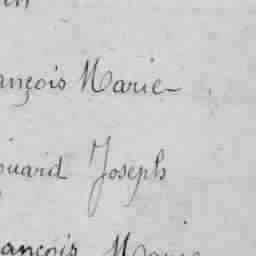 ançois Marie
ouard Joseph
ançois Marie